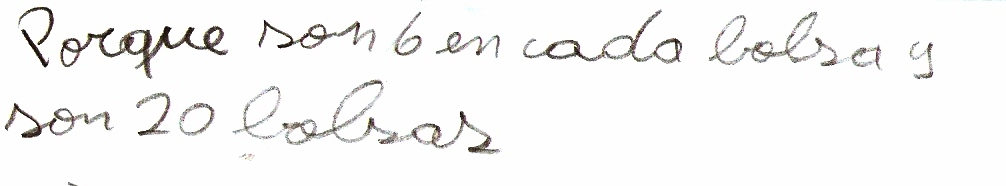 Porque son 6 en cada bolsa y
son 20 bolsas